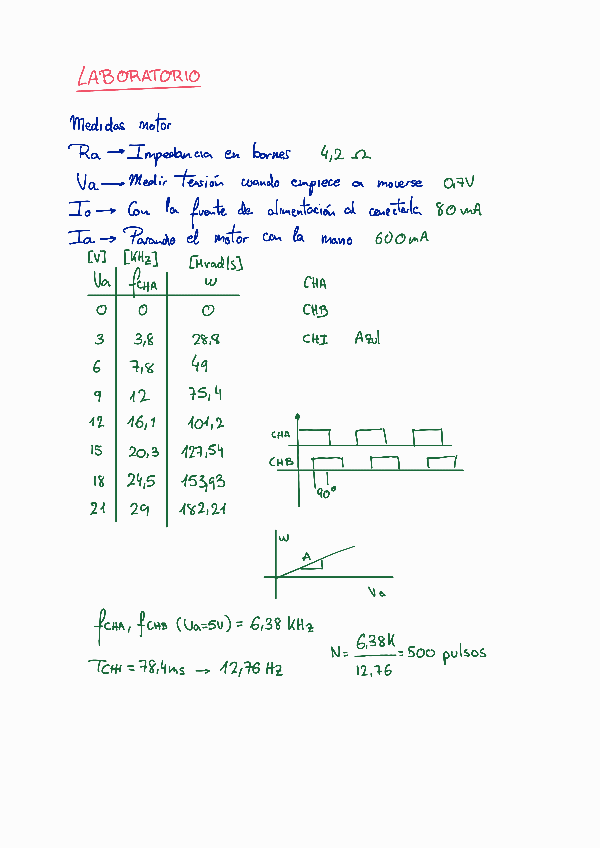 LABORATORIO
Medidas motor
Ra → Impedancia en bornes 4,2 Ω
Va → Medir tensión cuando empiece a moverse 0,7V
Io → Con la fuente de alimentación al conectarla 80mA
Ia → Parando el motor con la mano 600mA
[V] [KHz] [Mrad/s]
Va fCHA w
0 0 0
3 3,8 28,8
6 7,8 49
9 12 75,4
12 16,1 101,2
15 20,3 127,54
18 24,5 153,93
21 29 182,21
CHA
CHB
CHI Azul
CHA
CHB
90°
w
A
Va
fCHA, fCHB (Va=5V) = 6,38 KHz
TCHI = 78,4ms → 12,76 Hz
N = 6,38K / 12,76 = 500 pulsos